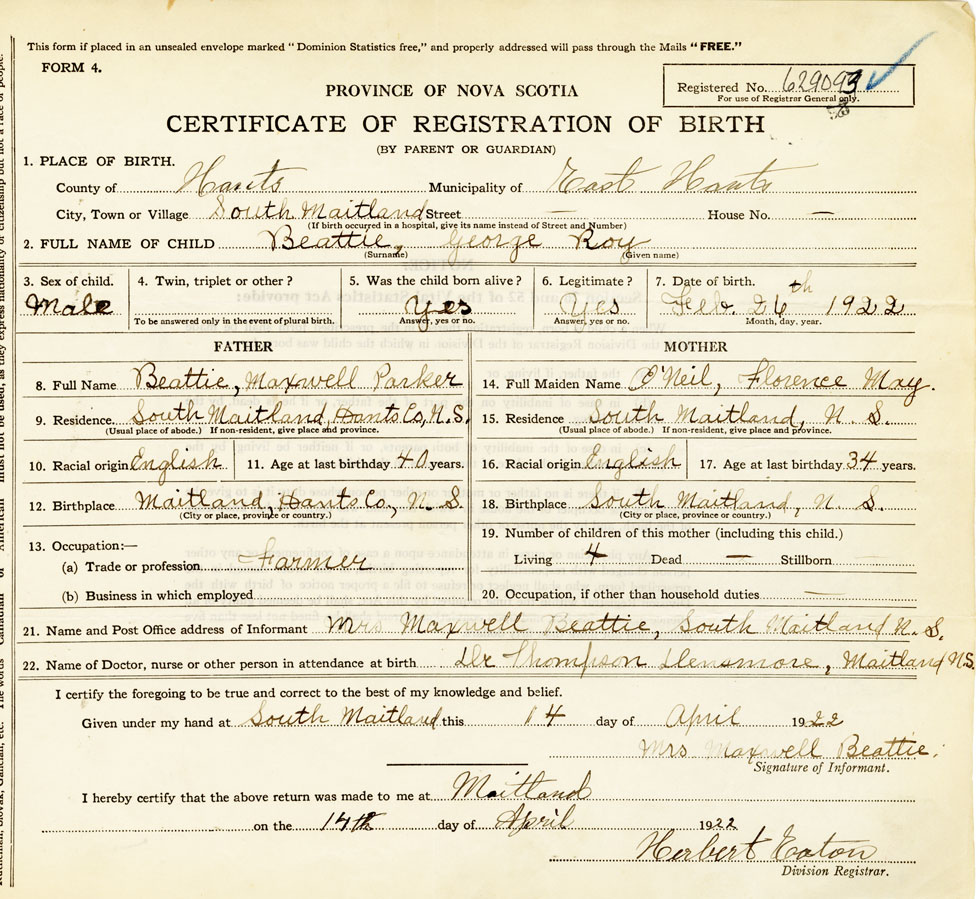 This form if placed in an unsealed envelope marked "Dominion Statistics free," and properly addressed will pass through the Mails "FREE."
FORM 4.
Registered No. 629093
For use of Registrar General only.
PROVINCE OF NOVA SCOTIA
CERTIFICATE OF REGISTRATION OF BIRTH
(BY PARENT OR GUARDIAN)
1. PLACE OF BIRTH.
County of Hants Municipality of East Hants
City, Town or Village South Maitland Street — House No. —
(If birth occurred in a hospital, give its name instead of Street and Number)
2. FULL NAME OF CHILD Beattie, George Roy
(Surname) (Given name)
3. Sex of child. 4. Twin, triplet or other? 5. Was the child born alive? 6. Legitimate? 7. Date of birth.
Male Yes Yes Feb. 26th 1922
To be answered only in the event of plural birth. Answer, yes or no. Answer, yes or no. Month, day, year.
FATHER MOTHER
8. Full Name Beattie, Maxwell Parker 14. Full Maiden Name O'Neil, Florence May.
9. Residence South Maitland, Hants Co, N.S. 15. Residence South Maitland, N. S.
(Usual place of abode.) If non-resident, give place and province. (Usual place of abode.) If non-resident, give place and province.
10. Racial origin English 11. Age at last birthday 40 years. 16. Racial origin English 17. Age at last birthday 34 years.
12. Birthplace Maitland, Hants Co., N. S. 18. Birthplace South Maitland, N. S.
(City or place, province or country.) (City or place, province or country.)
13. Occupation:— 19. Number of children of this mother (including this child.)
(a) Trade or profession Farmer Living 4 Dead — Stillborn —
(b) Business in which employed 20. Occupation, if other than household duties —
21. Name and Post Office address of Informant Mrs Maxwell Beattie, South Maitland N. S.
22. Name of Doctor, nurse or other person in attendance at birth Dr Thompson Densmore, Maitland N.S.
I certify the foregoing to be true and correct to the best of my knowledge and belief.
Given under my hand at South Maitland this 14 day of April 1922
Mrs Maxwell Beattie.
Signature of Informant.
I hereby certify that the above return was made to me at Maitland
on the 14th day of April 1922
Herbert Eaton
Division Registrar.